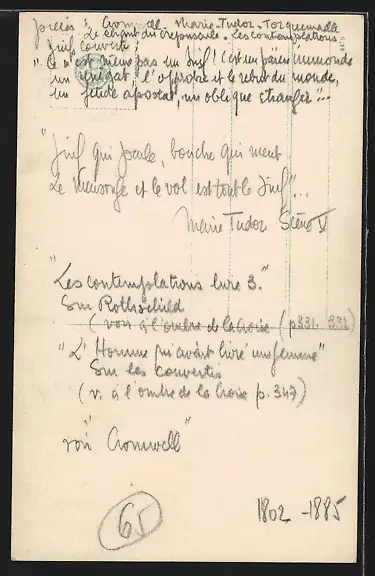 pièces : Cromwell - Marie-Tudor - Torquemada
Le chant du crépuscule - Les contemplations
Juifs convertis :
"Ce n'est même pas un Juif ! C'est un païen immonde
un renégat l'opprobre et le rebut du monde,
un fétide apostat, un oblique étranger"...
"Juif qui parle, bouche qui ment
Le mensonge et le vol est tout le Juif"...
Marie Tudor Scène V
"Les contemplations livre 3."
Sur Rothschild
(voir à l'ombre de la Croix (p 331. 332)
"L'Homme qui avait livré une femme"
Sur les convertis
(v. à l'ombre de la Croix p. 347)
voir "Cromwell"
65
1802 - 1885